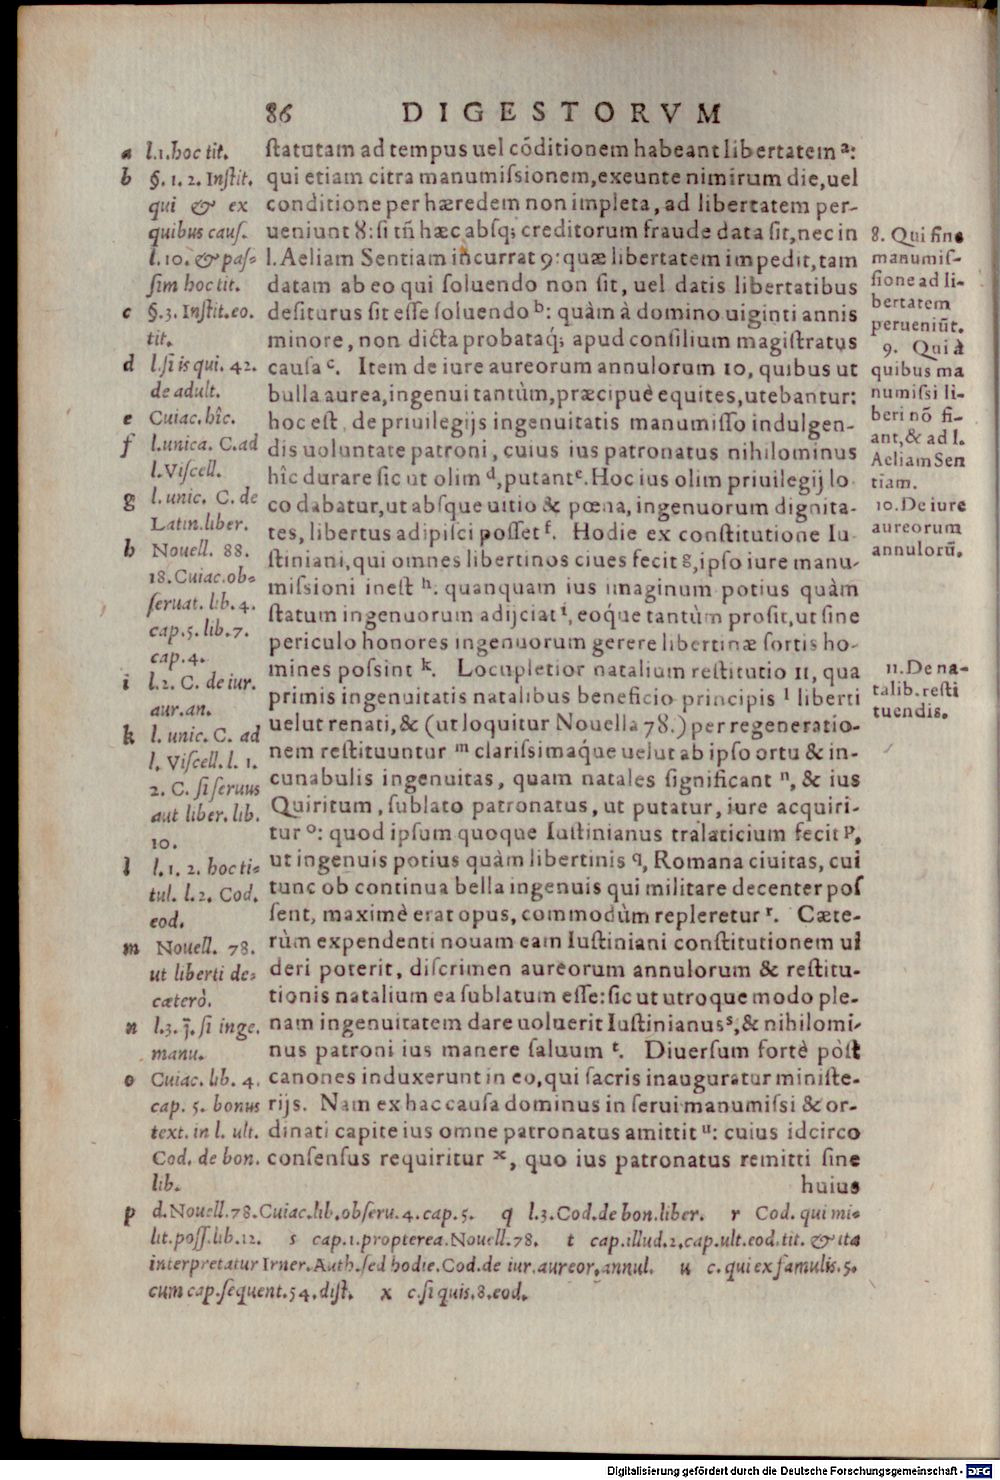 86 DIGESTORVM
ſtatutam ad tempus uel cõditionem habeant libertatem ᵃ:
qui etiam citra manumiſsionem, exeunte nimirum die, uel
conditione per hæredem non impleta, ad libertatem per-
ueniunt 8: ſi tñ hæc abſq; creditorum fraude data ſit, nec in
l. Aeliam Sentiam incurrat 9: quæ libertatem impedit, tam
datam ab eo qui ſoluendo non ſit, uel datis libertatibus
deſiturus ſit eſſe ſoluendo ᵇ: quàm à domino uiginti annis
minore, non dicta probataq́; apud conſilium magiſtratus
cauſa ᶜ. Item de iure aureorum annulorum 10, quibus ut
bulla aurea, ingenui tantùm, præcipuè equites, utebantur:
hoc eſt, de priuilegijs ingenuitatis manumiſſo indulgen-
dis uoluntate patroni, cuius ius patronatus nihilominus
hîc durare ſic ut olim ᵈ, putant ᵉ. Hoc ius olim priuilegij lo
co dabatur, ut abſque uitio & pœna, ingenuorum dignita-
tes, libertus adipiſci poſſet ᶠ. Hodie ex conſtitutione Iu-
ſtiniani, qui omnes libertinos ciues fecit g, ipſo iure manu-
miſsioni ineſt ʰ. quanquam ius imaginum potius quàm
ſtatum ingenuorum adijciat ⁱ, eoq́ue tantùm proſit, ut ſine
periculo honores ingenuorum gerere libertinæ ſortis ho-
mines poſsint ᵏ. Locupletior natalium reſtitutio 11, qua
primis ingenuitatis natalibus beneficio principis ˡ liberti
uelut renati, & (ut loquitur Nouella 78.) per regeneratio-
nem reſtituuntur ᵐ clariſsimaq́ue uelut ab ipſo ortu & in-
cunabulis ingenuitas, quam natales ſignificant ⁿ, & ius
Quiritum, ſublato patronatus, ut putatur, iure acquiri-
tur ᵒ: quod ipſum quoque Iuſtinianus tralaticium fecit ᵖ,
ut ingenuis potius quàm libertinis q, Romana ciuitas, cui
tunc ob continua bella ingenuis qui militare decenter poſ
ſent, maximè erat opus, commodùm repleretur ʳ. Cæte-
rùm expendenti nouam eam Iuſtiniani conſtitutionem ui
deri poterit, diſcrimen aureorum annulorum & reſtitu-
tionis natalium ea ſublatum eſſe: ſic ut utroque modo ple-
nam ingenuitatem dare uoluerit Iuſtinianus ˢ, & nihilomi-
nus patroni ius manere ſaluum ᵗ. Diuerſum fortè pòſt
canones induxerunt in eo, qui ſacris inauguratur miniſte-
rijs. Nam ex hac cauſa dominus in ſerui manumiſsi & or-
dinati capite ius omne patronatus amittit ᵘ: cuius idcirco
conſenſus requiritur ˣ, quo ius patronatus remitti ſine
huius
a l.1. hoc tit.
b §. 1. 2. Inſtit.
qui & ex
quibus cauſ.
l. 10. & paſ-
ſim hoc tit.
c §. 3. Inſtit. eo.
tit.
d l. ſi is qui. 42.
de adult.
e Cuiac. hîc.
f l. unica. C. ad
l. Viſcell.
g l. unic. C. de
Latin. liber.
h Nouell. 88.
18. Cuiac. ob-
ſeruat. lib. 4.
cap. 5. lib. 7.
cap. 4.
i l. 2. C. de iur.
aur. an.
k l. unic. C. ad
l. Viſcell. l. 1.
2. C. ſi ſeruus
aut liber. lib.
10.
l l. 1. 2. hoc ti-
tul. l. 2. Cod.
eod.
m Nouell. 78.
ut liberti de-
cæterò.
n l. 3. §. ſi inge.
manu.
o Cuiac. lib. 4.
cap. 5. bonus
text. in l. ult.
Cod. de bon.
lib.
p d. Nouell. 78. Cuiac. lib. obſeru. 4. cap. 5. q l. 3. Cod. de bon. liber. r Cod. qui mi-
lit. poſſ. lib. 12. s cap. 1. propterea. Nouell. 78. t cap. illud. 2. cap. ult. eod. tit. & ita
interpretatur Irner. Auth. ſed hodie. Cod. de iur. aureor. annul. u c. qui ex famulis. 5.
cum cap. ſequent. 54. diſt. x c. ſi quis. 8. eod.
8. Qui ſine
manumiſ-
ſione ad li-
bertatem
perueniũt.
9. Qui à
quibus ma
numiſsi li-
beri nõ fi-
ant, & ad l.
Aeliam Sen
tiam.
10. De iure
aureorum
annulorũ.
11. De na-
talib. reſti
tuendis.
Digitalisierung gefördert durch die Deutsche Forschungsgemeinschaft - DFG